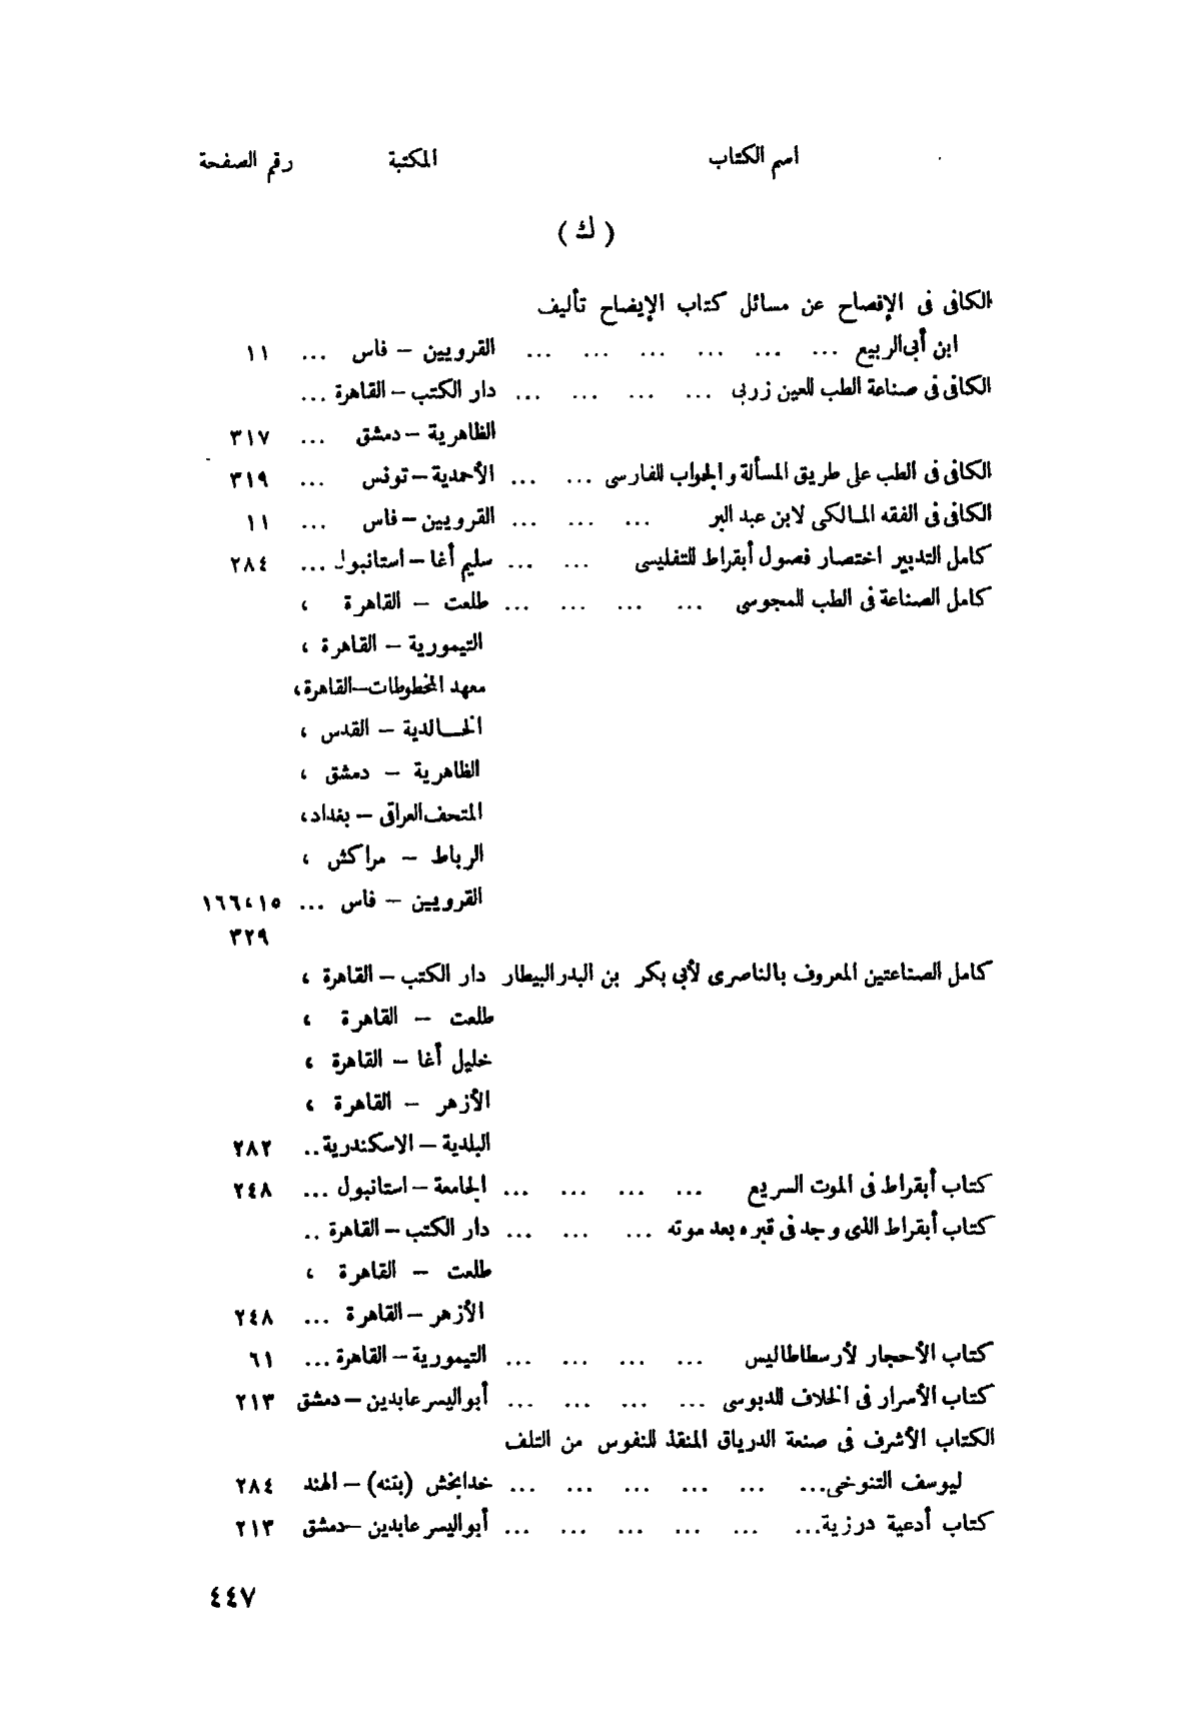 اسم الكتاب المكتبة رقم الصفحة
( ك )
الكافى فى الإفصاح عن مسائل كتاب الإيضاح تأليف
ابن أبى الربيع ... ... ... ... ... ... القرويين – فاس ... ١١
الكافى فى صناعة الطب للعين زربى ... ... ... ... دار الكتب – القاهرة ...
الظاهرية – دمشق ... ٣١٧
الكافى فى الطب على طريق المسألة والجواب للفارسى ... ... الأحمدية – تونس ... ٣١٩
الكافى فى الفقه المالكى لابن عبد البر ... ... ... القرويين – فاس ... ١١
كامل التدبير اختصار فصول أبقراط للتفليسى ... ... سليم أغا – استانبول ... ٢٨٤
كامل الصناعة فى الطب للمجوسى ... ... ... ... طلعت – القاهرة ،
التيمورية – القاهرة ،
معهد المخطوطات – القاهرة ،
الخالدية – القدس ،
الظاهرية – دمشق ،
المتحف العراقى – بغداد ،
الرباط – مراكش ،
القرويين – فاس ... ١٥ ، ١٦٦
٣٢٩
كامل الصناعتين المعروف بالناصرى لأبى بكر بن البدر البيطار دار الكتب – القاهرة ،
طلعت – القاهرة ،
خليل أغا – القاهرة ،
الأزهر – القاهرة ،
البلدية – الاسكندرية .. ٢٨٢
كتاب أبقراط فى الموت السريع ... ... ... ... الجامعة – استانبول ... ٢٤٨
كتاب أبقراط الذى وجد فى قبره بعد موته ... ... ... دار الكتب – القاهرة ..
طلعت – القاهرة ،
الأزهر – القاهرة ... ٢٤٨
كتاب الأحجار لأرسطاطاليس ... ... ... ... التيمورية – القاهرة ... ٦١
كتاب الأسرار فى الخلاف للدبوسى ... ... ... ... أبو اليسر عابدين – دمشق ٢١٣
الكتاب الأشرف فى صنعة الدرياق المنقذ للنفوس من التلف
ليوسف التنوخى ... ... ... ... ... ... خدابخش (بتنه) – الهند ٢٨٤
كتاب أدعية درزية ... ... ... ... ... ... أبو اليسر عابدين – دمشق ٢١٣
٤٤٧